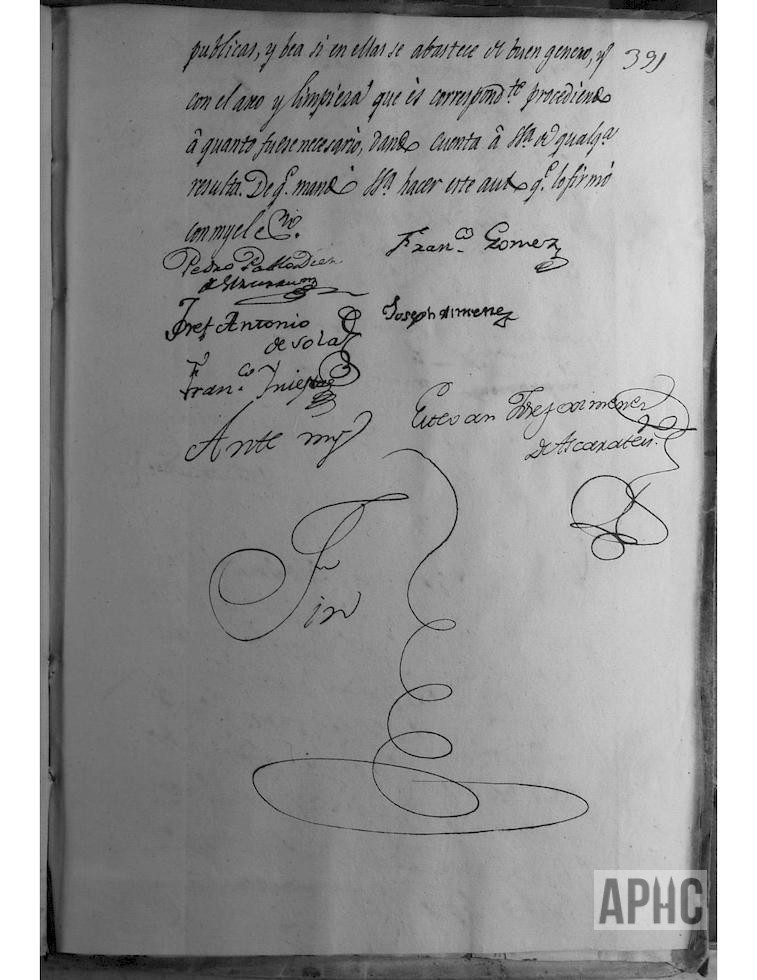 391
publicas, y bea si en ellas se abastece de buen genero, y
con el aseo y limpieza que ès correspond.te procediendo
â quanto fuese necesario, dando cuenta â SSª de qualqª
resulta. De q.e mandó SSª hacer este auto q.e lo firmó
con my el ess.no
Fran.co Gomez
Pedro Pablo Diez
Joseph Ximenez
Josef Antonio
de Sola
Fran.co Yniestas
Estevan Josef Ximenez
De Ascarateu.
Ante my
Fin
APHC